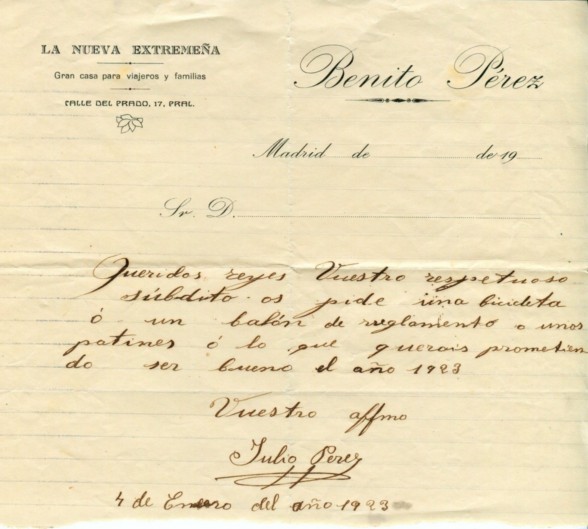 LA NUEVA EXTREMEÑA
Gran casa para viajeros y familias
CALLE DEL PRADO, 17, PRAL.
Benito Pérez
Madrid de de 19
Sr. D.
Queridos reyes Vuestro respetuoso
súbdito os pide una bicicleta
ó un balón de reglamento o unos
patines ó lo que querais prometien
do ser bueno el año 1923
Vuestro affmo
Julio Perez
4 de Enero del año 1923